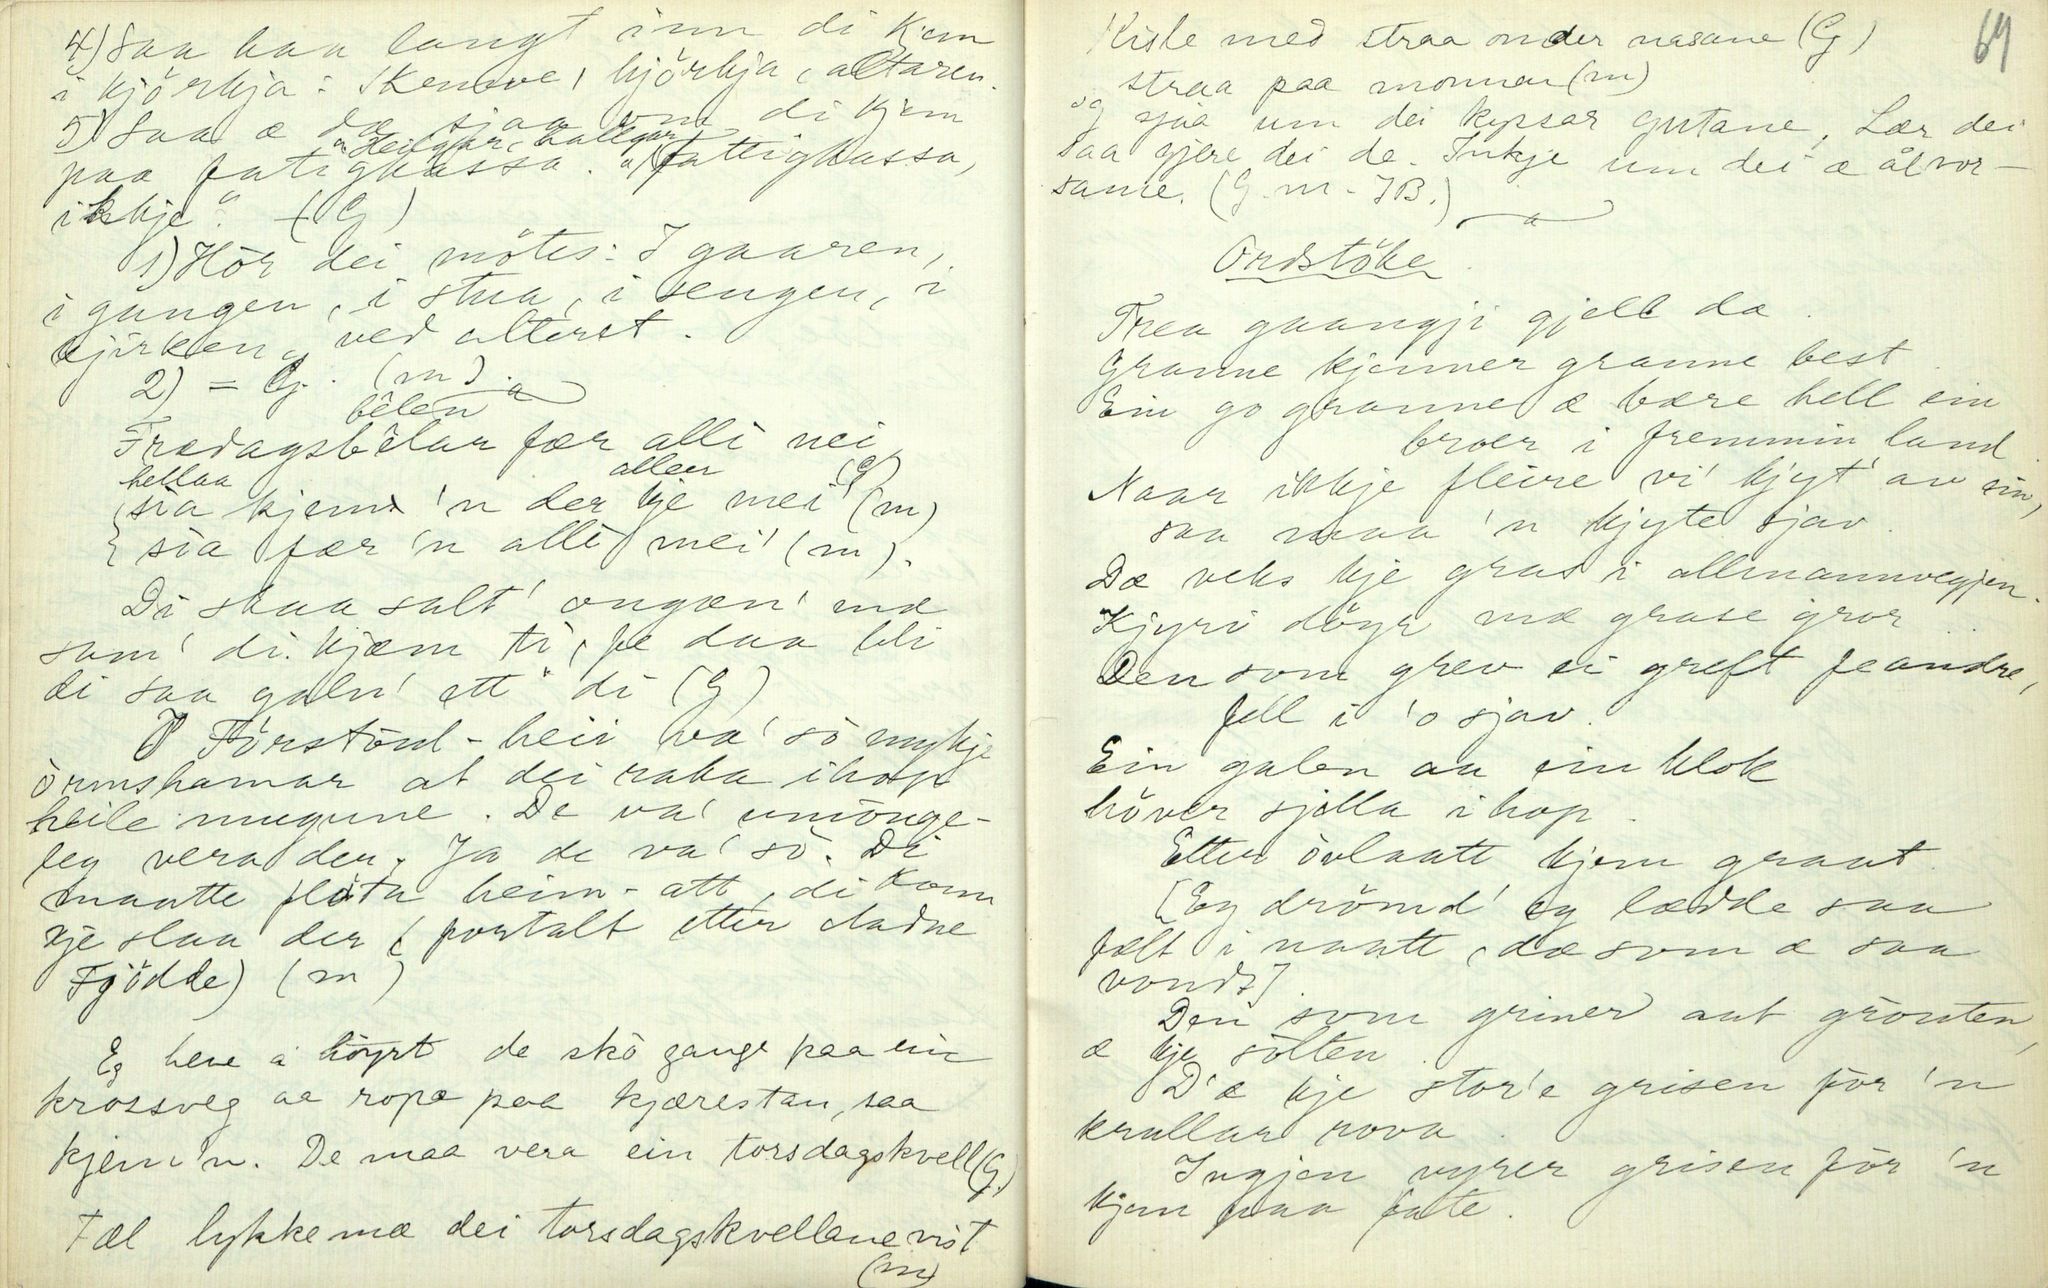 4) Saa haa langt inn di kjem
i kjörkja: Skemve, kjörkja, altaren.
5) Saa æ da sjaa om di kjem
paa fatigkassa. "Heilgar, hallgar, fattigkassa,
ikkje". (G)
1) Hör dei mötes: I gaaren,
i gangen, i stua, i sengen, i
kjirken, ved alteret.
2) = G. (m).
bêlen
Fredagsbêlar fær alli nei
hellaa allen (G)
sia kjem 'n der kje mei (m)
sia fær 'n alli mei' (m).
Di skaa salt' ongæn' mæ
som' di kjæm ti, fe daa bli
di saa galn' ett di (G)
I Förstöul-heii va' sö mykje
örmshamar at dei raka ihop
heile mugune. De va' umönge-
leg vera der. Ja de va' sö. Di
maatte flöta heim-att, di kom
kje slaa der (fortalt etter Aadne
Fjödde) (m)
Eg heve å höyrt de skö gange paa ein
krossveg aa ropa paa kjærestan, saa
kjem'n. De maa vera ein torsdagskvell (G.)
Fæl lykke mæ dei torsdagskvellane vist
(m)
64
Kiste med straa onder nasane (G)
straa paa monnen (m)
og sjaa um dei kyssar gutane. Lær dei
saa gjere dei de. Inkje um dei æ ålvor-
same. (G. m - JB.)
Ordstöke
Trea gaangji gjell da.
Granne kjenner granne best
Ein go granne æ bære hell ein
broer i fremmin land
Naar ikkje fleire vi' kjyt' av ein,
saa maa 'n kjyte sjav.
Dæ veks kje gras i allmannvegjen.
Kjyri döyr mæ grase gror
Den som grev ei greft fe andre,
fell i 'o sjav.
Ein galen aa ein klok
höver sjella ihop.
Etter övlaatt kjem graat.
[Eg drömd' eg lædde saa
fælt i naatt, dæ som æ saa
vondt].
Den som griner aat grauten,
æ kje sölten.
D'æ kje stor'e grisen för 'n
krullar rova.
Ingjen vyrer grisen för 'n
kjem paa fate.